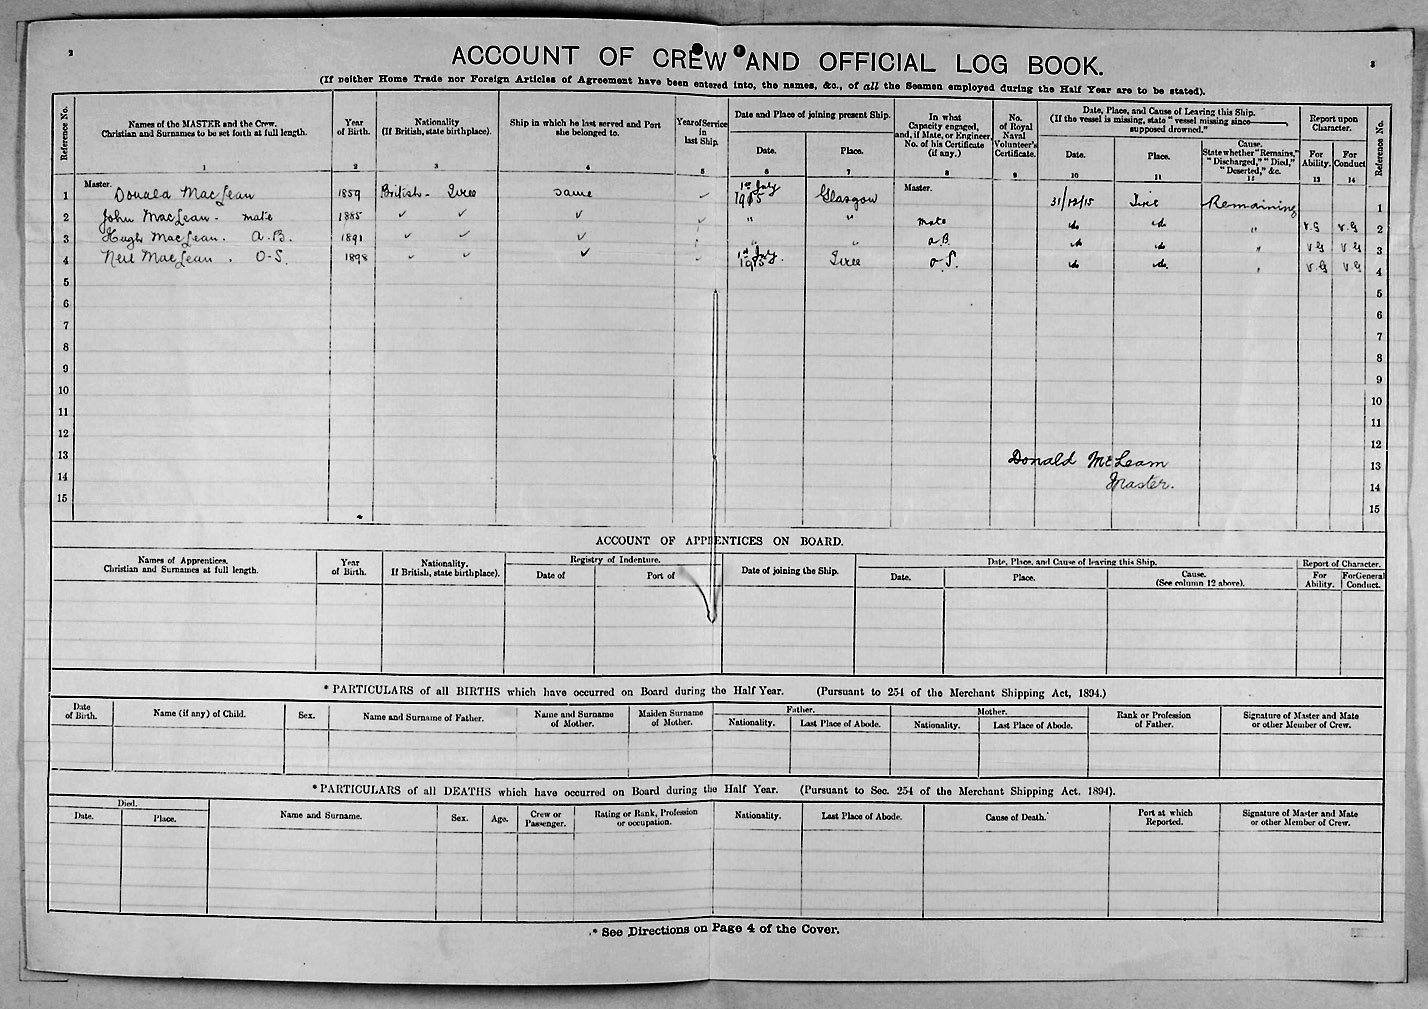 2
3
ACCOUNT OF CREW AND OFFICIAL LOG BOOK.
(If neither Home Trade nor Foreign Articles of Agreement have been entered into, the names, &c., of all the Seamen employed during the Half Year are to be stated).
Reference No. | Names of the MASTER and the Crew. Christian and Surnames to be set forth at full length. | Year of Birth. | Nationality (If British, state birthplace). | Ship in which he last served and Port she belonged to. | Year of Service in last Ship. | Date and Place of joining present Ship. Date. Place. | In what Capacity engaged, and, if Mate, or Engineer, No. of his Certificate (if any.) | No. of Royal Naval Volunteer's Certificate. | Date, Place, and Cause of Leaving this Ship. (If the vessel is missing, state "vessel missing since———, supposed drowned." Date. Place. Cause. State whether "Remains," "Discharged," "Died," "Deserted," &c. | Report upon Character. For Ability. For Conduct | Reference No.
1 2 3 4 5 6 7 8 9 10 11 12 13 14
1 Master. Donald MacLean 1859 British - Tiree same ✓ 1st July 1915 Glasgow Master. 31/12/15 Tiree Remaining 1
2 John MacLean - mate 1885 ✓ ✓ ✓ ✓ " " mate do do " V.G V.G 2
3 Hugh MacLean. A.B. 1891 ✓ ✓ ✓ ✓ " " A.B. do do " V.G V.G 3
4 Neil MacLean. O-S. 1898 ✓ ✓ ✓ ✓ 1st July 1915. Tiree O.S. do do. " V.G V.G 4
5 5
6 6
7 7
8 8
9 9
10 10
11 11
12 12
13 Donald McLean 13
14 Master. 14
15 15
ACCOUNT OF APPRENTICES ON BOARD.
Names of Apprentices. Christian and Surnames at full length. | Year of Birth. | Nationality. If British, state birthplace). | Registry of Indenture. Date of Port of | Date of joining the Ship. | Date, Place, and Cause of leaving this Ship. Date. Place. Cause. (See column 12 above). | Report of Character. For Ability. For General Conduct.
* PARTICULARS of all BIRTHS which have occurred on Board during the Half Year. (Pursuant to 254 of the Merchant Shipping Act, 1894.)
Date of Birth. | Name (if any) of Child. | Sex. | Name and Surname of Father. | Name and Surname of Mother. | Maiden Surname of Mother. | Father. Nationality. Last Place of Abode. | Mother. Nationality. Last Place of Abode. | Rank or Profession of Father. | Signature of Master and Mate or other Member of Crew.
* PARTICULARS of all DEATHS which have occurred on Board during the Half Year. (Pursuant to Sec. 254 of the Merchant Shipping Act, 1894).
Died. Date. Place. | Name and Surname. | Sex. | Age. | Crew or Passenger. | Rating or Rank, Profession or occupation. | Nationality. | Last Place of Abode. | Cause of Death. | Port at which Reported. | Signature of Master and Mate or other Member of Crew.
* See Directions on Page 4 of the Cover.